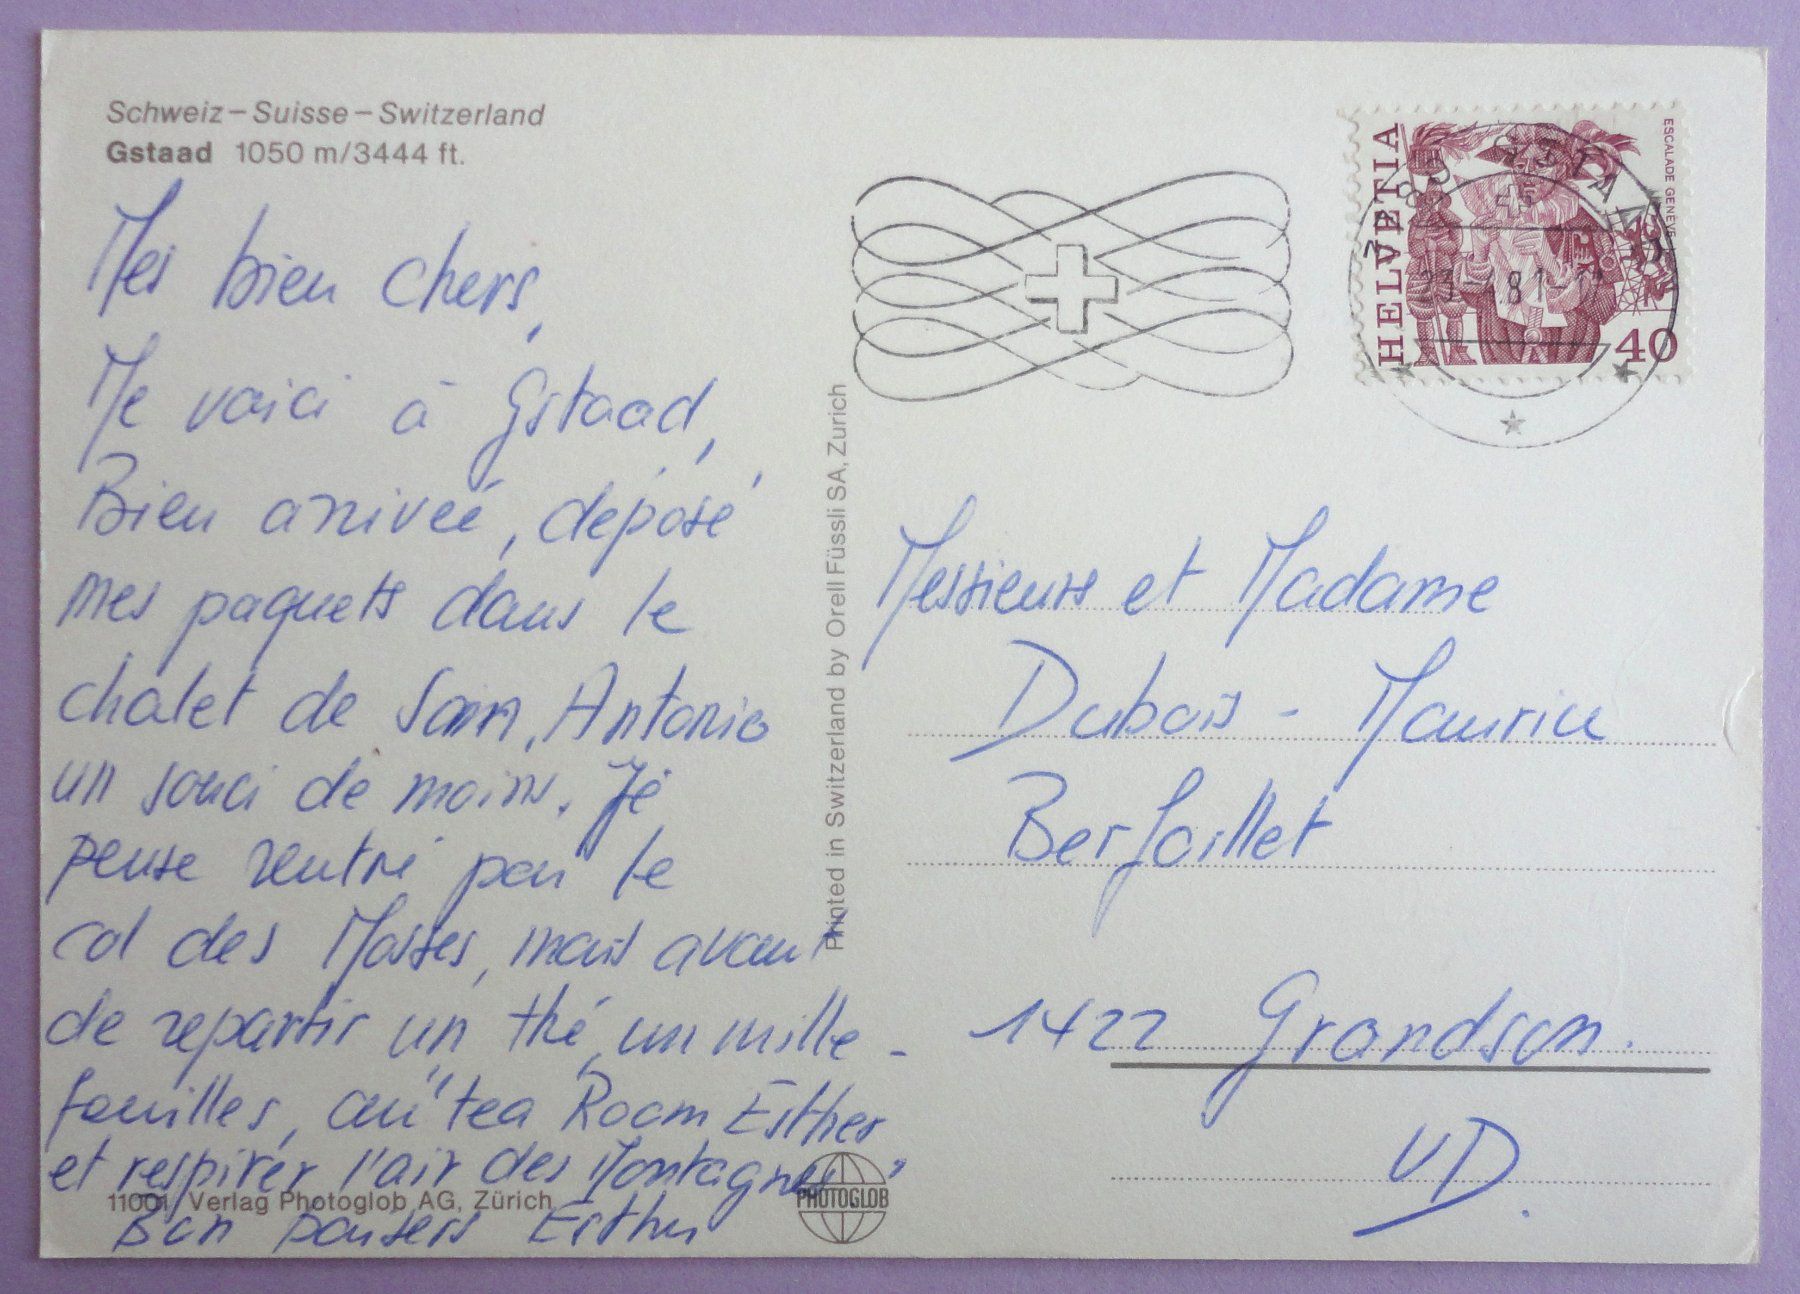 Schweiz – Suisse – Switzerland
Gstaad 1050 m/3444 ft.
Mes bien chers,
Me voici à Gstaad,
Bien arrivée, déposé
mes paquets dans le
chalet de Antonio
un souci de moins. Je
pense rentré par le
col des Mosses, mais avant
de repartir un thé, un mille-
fouilles, au "tea Room Esther
et respirer l'air des Montagnes"
Bon pensers Esther
11001 Verlag Photoglob AG, Zürich
PHOTOGLOB
Printed in Switzerland by Orell Füssli SA, Zurich
HELVETIA
ESCALADE GENÈVE
40
3780 GSTAAD
23.-4.81-12
Messieurs et Madame
Dubois - Maurice
1422 Grandson.
VD.